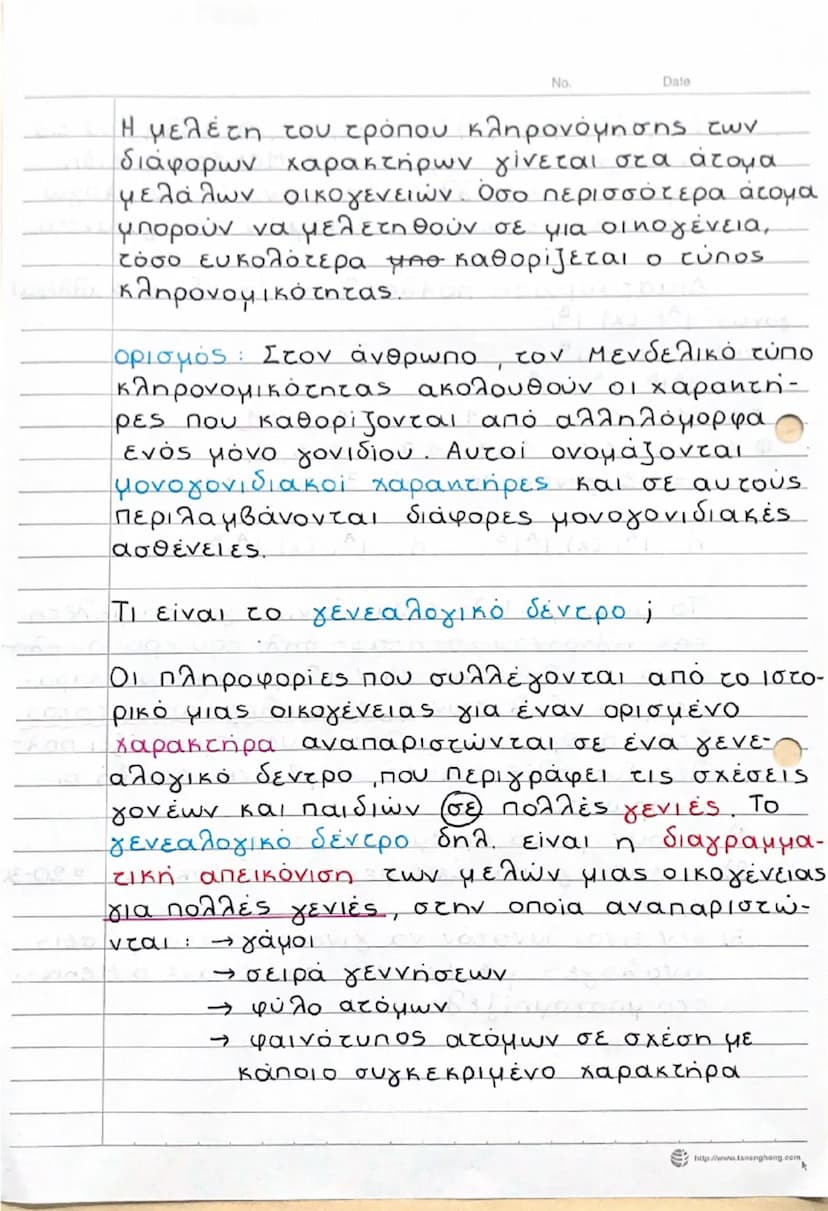 No. Date
Η μελέτη του τρόπου κληρονόμησης των
διάφορων χαρακτήρων γίνεται στα άτομα
μελάλων οικογενειών. Όσο περισσότερα άτομα
μπορούν να μελετηθούν σε μια οικογένεια,
τόσο ευκολότερα καθορίζεται ο τύπος
κληρονομικότητας.
ορισμός: Στον άνθρωπο, τον Μενδελικό τύπο
κληρονομικότητας ακολουθούν οι χαρακτή-
ρες που καθορίζονται από αλληλόμορφα
ενός μόνο γονιδίου. Αυτοί ονομάζονται
μονογονιδιακοί χαρακτήρες και σε αυτούς
περιλαμβάνονται διάφορες μονογονιδιακές
ασθένειες.
Τι είναι το γενεαλογικό δέντρο;
Οι πληροφορίες που συλλέγονται από το ιστο-
ρικό μιας οικογένειας για έναν ορισμένο
χαρακτήρα αναπαριστώνται σε ένα γενε-
αλογικό δεντρο, που περιγράφει τις σχέσεις
γονέων και παιδιών σε πολλές γενιές. Το
γενεαλογικό δέντρο δηλ. είναι η διαγραμμα-
τική απεικόνιση των μελών μιας οικογένειας
για πολλές γενιές, στην οποία αναπαριστώ-
νται: → γάμοι
→ σειρά γεννήσεων
→ φύλο ατόμων
→ φαινότυπος ατόμων σε σχέση με
κάποιο συγκεκριμένο χαρακτήρα
http://www.tsnenghong.com